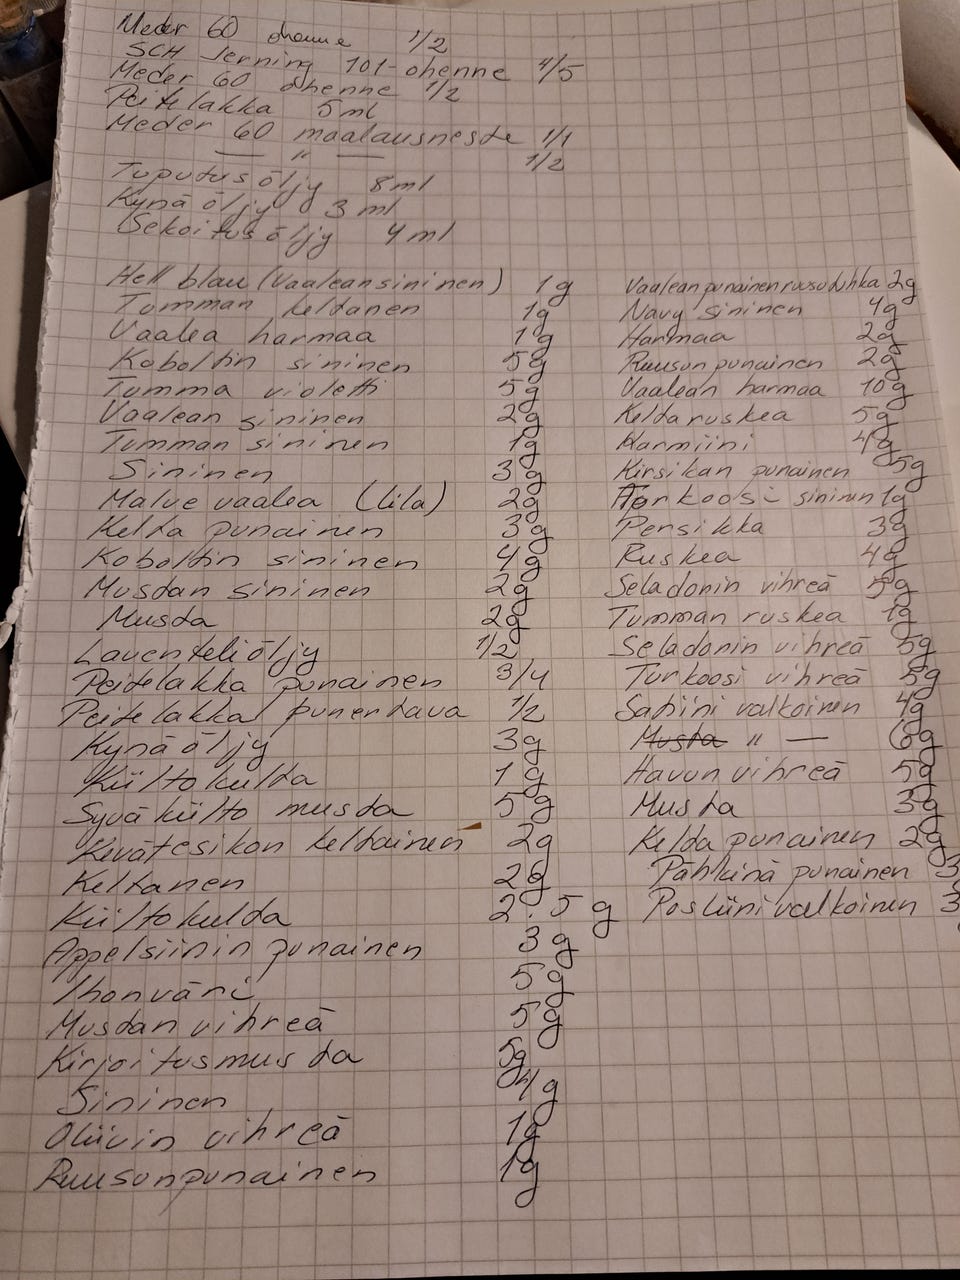 Meder 60 ohenne 1/2
SCH Jerning 101-ohenne 4/5
Meder 60 ohenne 1/2
Peitelakka 5 ml
Meder 60 maalausneste 1/1
— " — 1/2
Tuputusöljy 8 ml
Kynä öljy 3 ml
Sekoitusöljy 4 ml
Hell blau (Vaaleansininen) 1g
Tumman keltanen 1g
Vaalea harmaa 1g
Koboltin sininen 5g
Tumma violetti 5g
Vaalean sininen 2g
Tumman sininen 1g
Sininen 3g
Malve vaalea (Lila) 2g
Kelta punainen 3g
Koboltin sininen 4g
Mustan sininen 2g
Musta 2g
Laventeliöljy 1/2
Peitelakka punainen 3/4
Peitelakka punertava 1/2
Kynä öljy 3g
Kiiltokulta 1g
Syväkiilto musta 5g
Kevätesikon keltainen 2g
Keltanen 2g
Kiiltokulta 2.5 g
Appelsiinin punainen 3g
Ihonväri 5g
Mustan vihreä 5g
Kirjoitusmusta 5g
Sininen 4g
Oliivin vihreä 1g
Ruusunpunainen 1g
Vaalean punainen ruusu tuhka 2g
Navy sininen 4g
Harmaa 2g
Ruusun punainen 2g
Vaalean harmaa 10g
Kelta ruskea 5g
Karmiini 4g
Kirsikan punainen 5g
Turkoosi sininen 1g
Persikka 3g
Ruskea 4g
Seladonin vihreä 5g
Tumman ruskea 1g
Seladonin vihreä 5g
Turkoosi vihreä 5g
Satiini valkoinen 4g
Musta " — 6g
Havun vihreä 5g
Musta 3g
Kelta punainen 2g
Pähkinä punainen 3
Posliini valkoinen 3